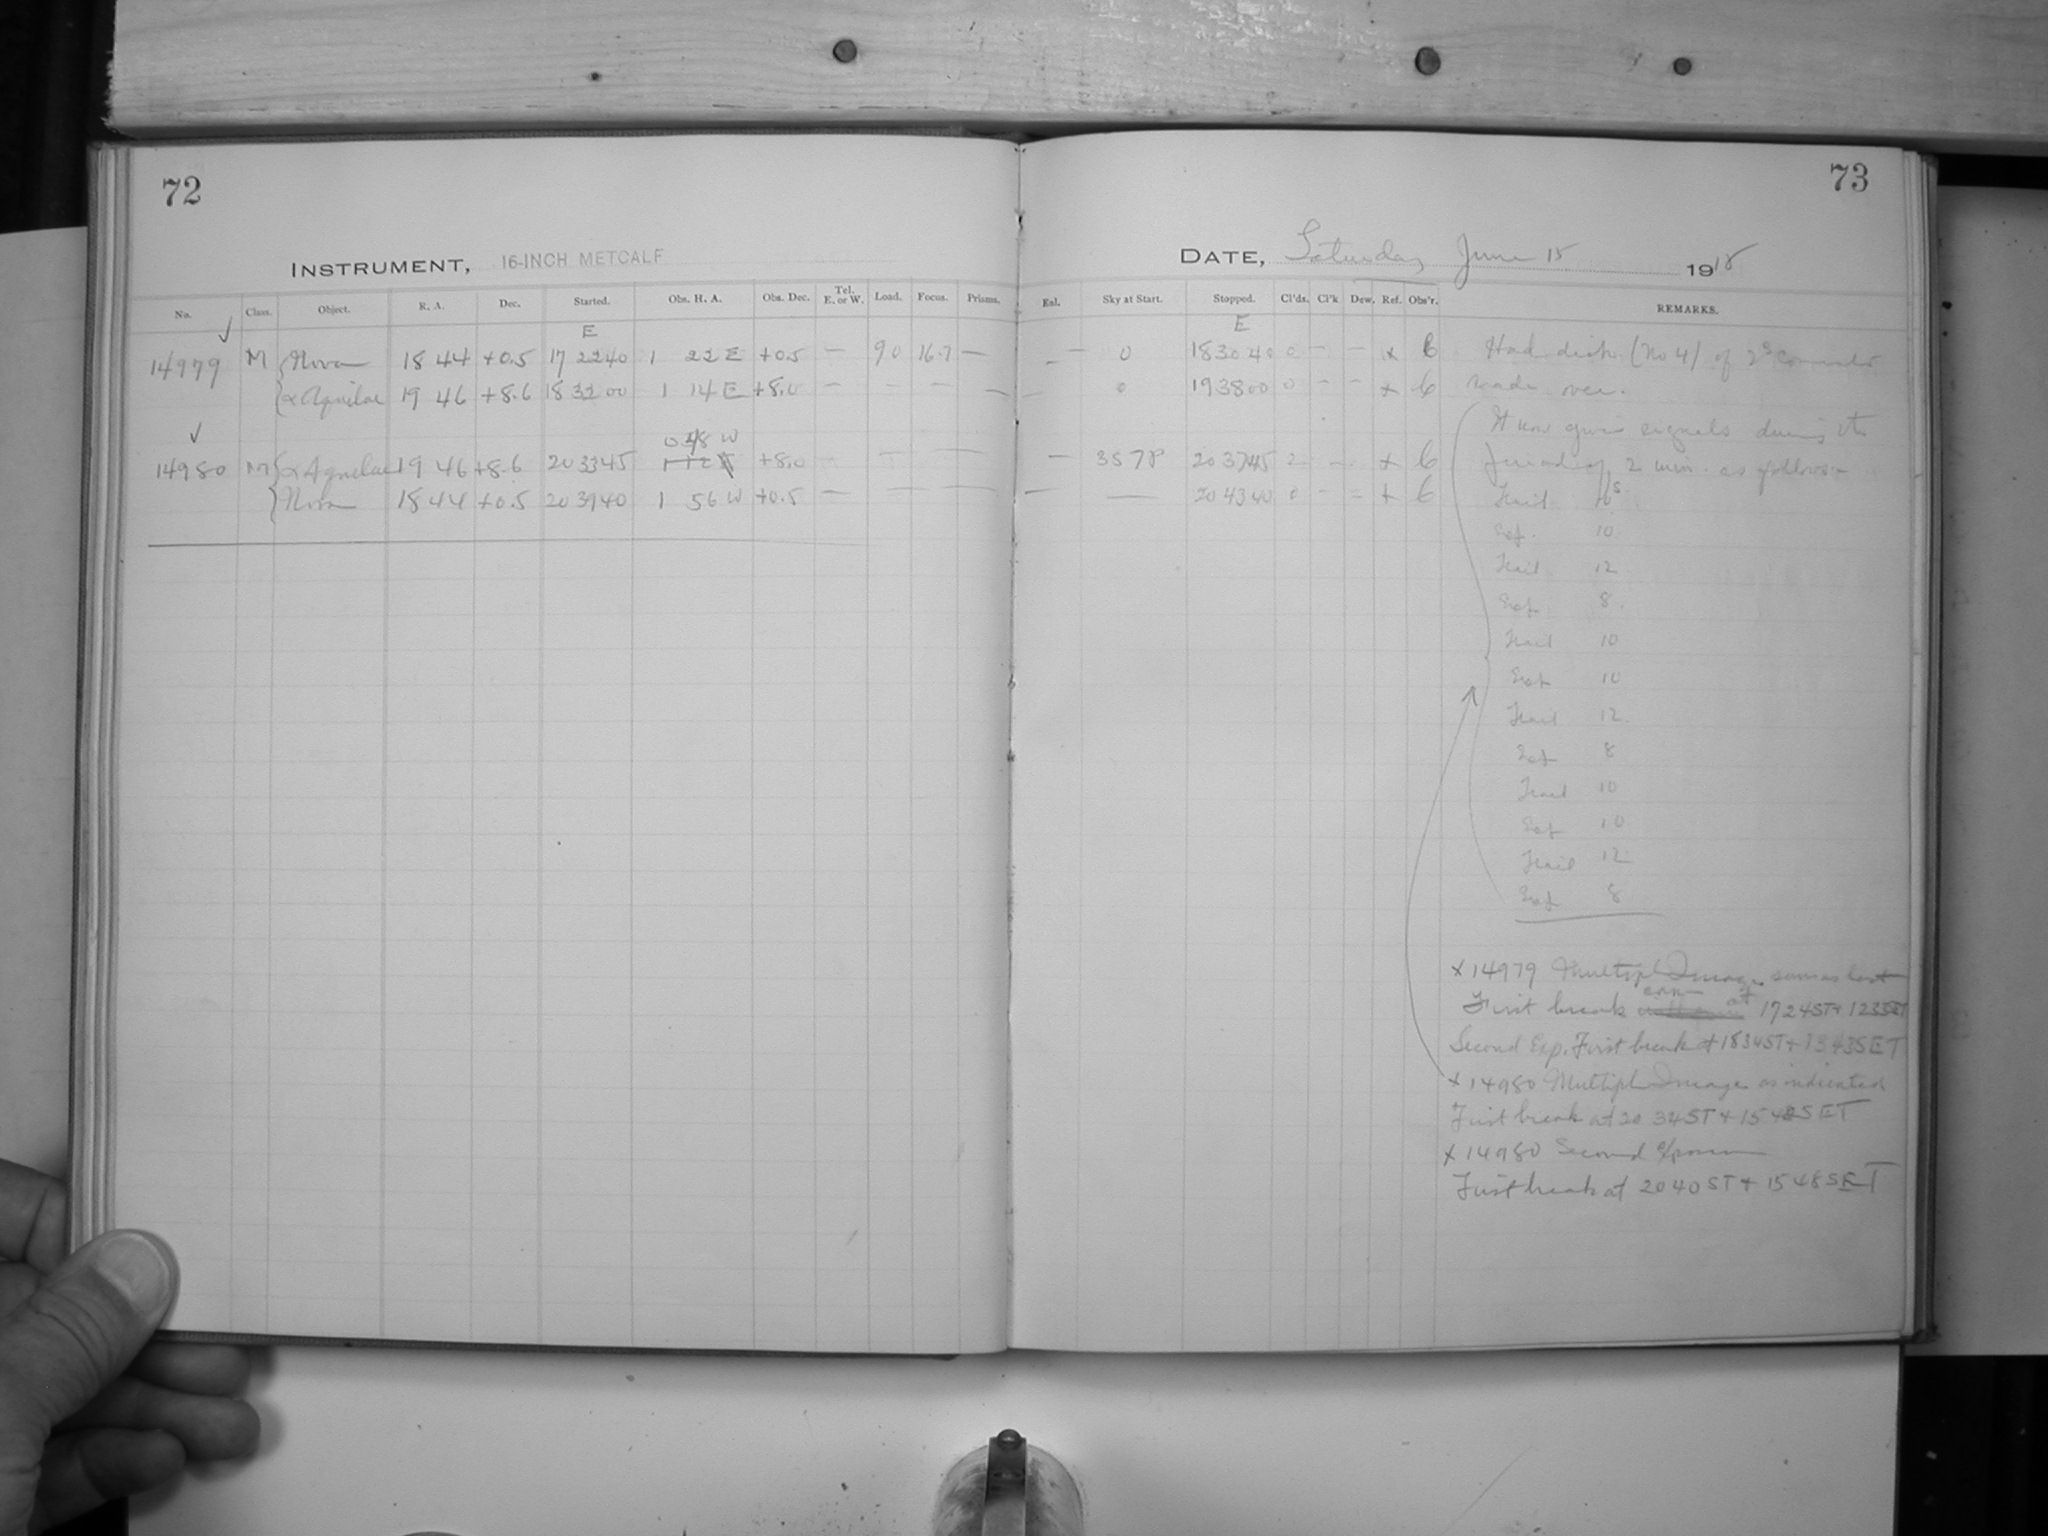 72
73
INSTRUMENT, 16-INCH METCALF
DATE, Saturday June 15 1918
No. Class. Object. R. A. Dec. Started. Obs. H. A. Obs. Dec. Tel. E. or W. Load. Focus. Prisms. Enl. Sky at Start. Stopped. Cl'ds. Cl'k Dew. Ref. Obs'r. REMARKS.
E E
14979 M Nova 18 44 +0.5 17 22 40 1 22 E +0.5 — 90 16.7 — — — 0 18 30 40 0 — — x 6 Had disk (No 4) of 2s
α Aquilae 19 46 +8.6 18 32 00 1 14 E +8.0 — — — — — 0 19 38 00 0 — — x 6 made over.
It now gives signals during the
0 48 W
14980 M α Aquilae 19 46 +8.6 20 33 45 +8.0 — 3578 20 37 45 2 — x 6 period of 2 min. as follows—
Nova 18 44 +0.5 20 39 40 1 56 W +0.5 — — — — — — 20 43 40 0 — = x 6 Trail 10s
Exp. 10
Trail 12
Exp. 8
Trail 10
Exp 10
Trail 12
Exp 8
Trail 10
Exp 10
Trail 12
Exp 8
x 14979 Multiple Image same as last
First break at 17 24 ST +
Second Exp. First break at 18 34 ST + 13 43 SET
x 14980 Multiple Image as indicated
First break at 20 34 ST + 15 48 SET
x 14980 Second exposure
First break at 20 40 ST + 15 48 SET